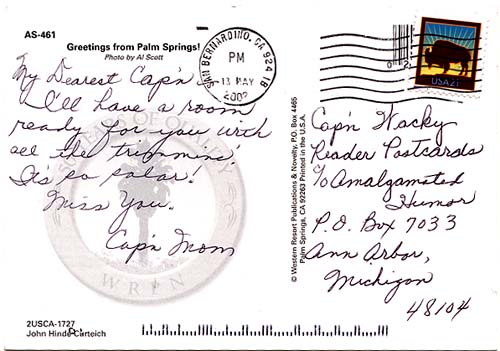 AS-461
Greetings from Palm Springs!
Photo by Al Scott
My Dearest Cap'n
I'll have a room
ready for you with
all the trimmins'.
Its so solar!
Miss You.
Cap'n Mom
SEAL OF QUALITY
WREN
2USCA-1727
John Hinde Curteich
© Western Resort Publications & Novelty, P.O. Box 4465
Palm Springs, CA 92263 Printed in the U.S.A.
SAN BERNARDINO, CA 924
PM
13 MAY
2002
USA21
Cap'n Wacky
Reader Postcards
c/o Amalgamated
Humor
P.O. Box 7033
Ann Arbor,
Michigan
48104